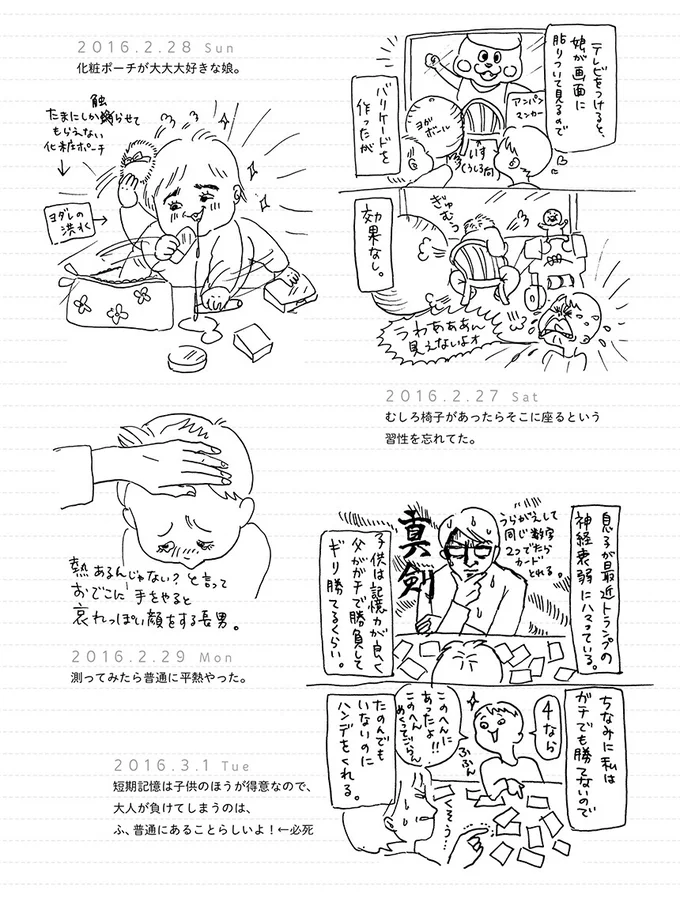 テレビをつけると、
娘が画面に
貼りついて見るので
バリケードを
作ったが
アンパン
マンカー
ヨガ
ボール
いす
(うしろ向)
効果なし。
ぎゅ
むっ
うわあああん
見えないよオ
2016.2.27 Sat
むしろ椅子があったらそこに座るという
習性を忘れてた。
2016.2.28 Sun
化粧ポーチが大大大好きな娘。
触
たまにしか らせて
もらえない
化粧ポーチ
ヨダレの
洪水
熱あるんじゃない?と言って
おでこに手をやると
哀れっぽい顔をする長男。
2016.2.29 Mon
測ってみたら普通に平熱やった。
息子が最近トランプの
神経衰弱にハマっている。
うらがえして
同じ数字
2つでたら
カード
とれる。
真剣
子供は記憶力が良く
父がガチで勝負して
ギリ勝てるくらい。
ちなみに私は
ガチでも勝てないので
4なら
このへんに
あったよ!!
このへん
めくってごらん
ふふん
たのんでも
いないのに
ハンデをくれる。
くそう…
2016.3.1 Tue
短期記憶は子供のほうが得意なので、
大人が負けてしまうのは、
ふ、普通にあることらしいよ!←必死